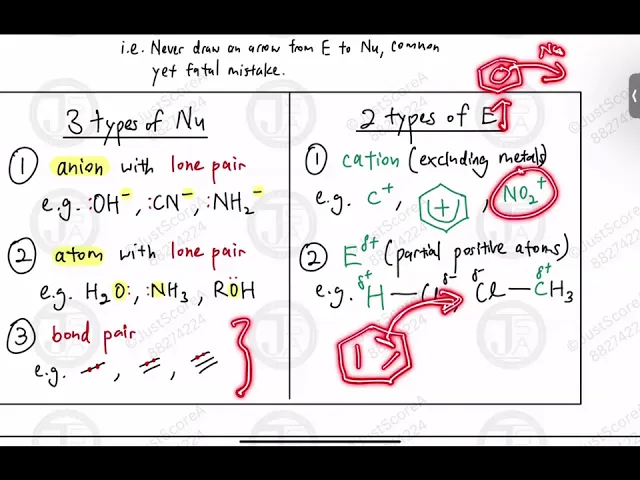 i.e. Never draw an arrow from E to Nu, common
yet fatal mistake.
Nu
3 types of Nu
① anion with lone pair
e.g. :OH⁻, :CN⁻, :NH₂⁻
② atom with lone pair
e.g. H₂O:, :NH₃, RÖH
③ bond pair
e.g. , ,
2 types of E
① cation (excluding metals)
e.g. C⁺, +, NO₂⁺
② E^δ+ (partial positive atoms)
e.g. δ+ H — Cl δ-, δ- Cl — δ+ CH₃
©JustScoreA
88274224